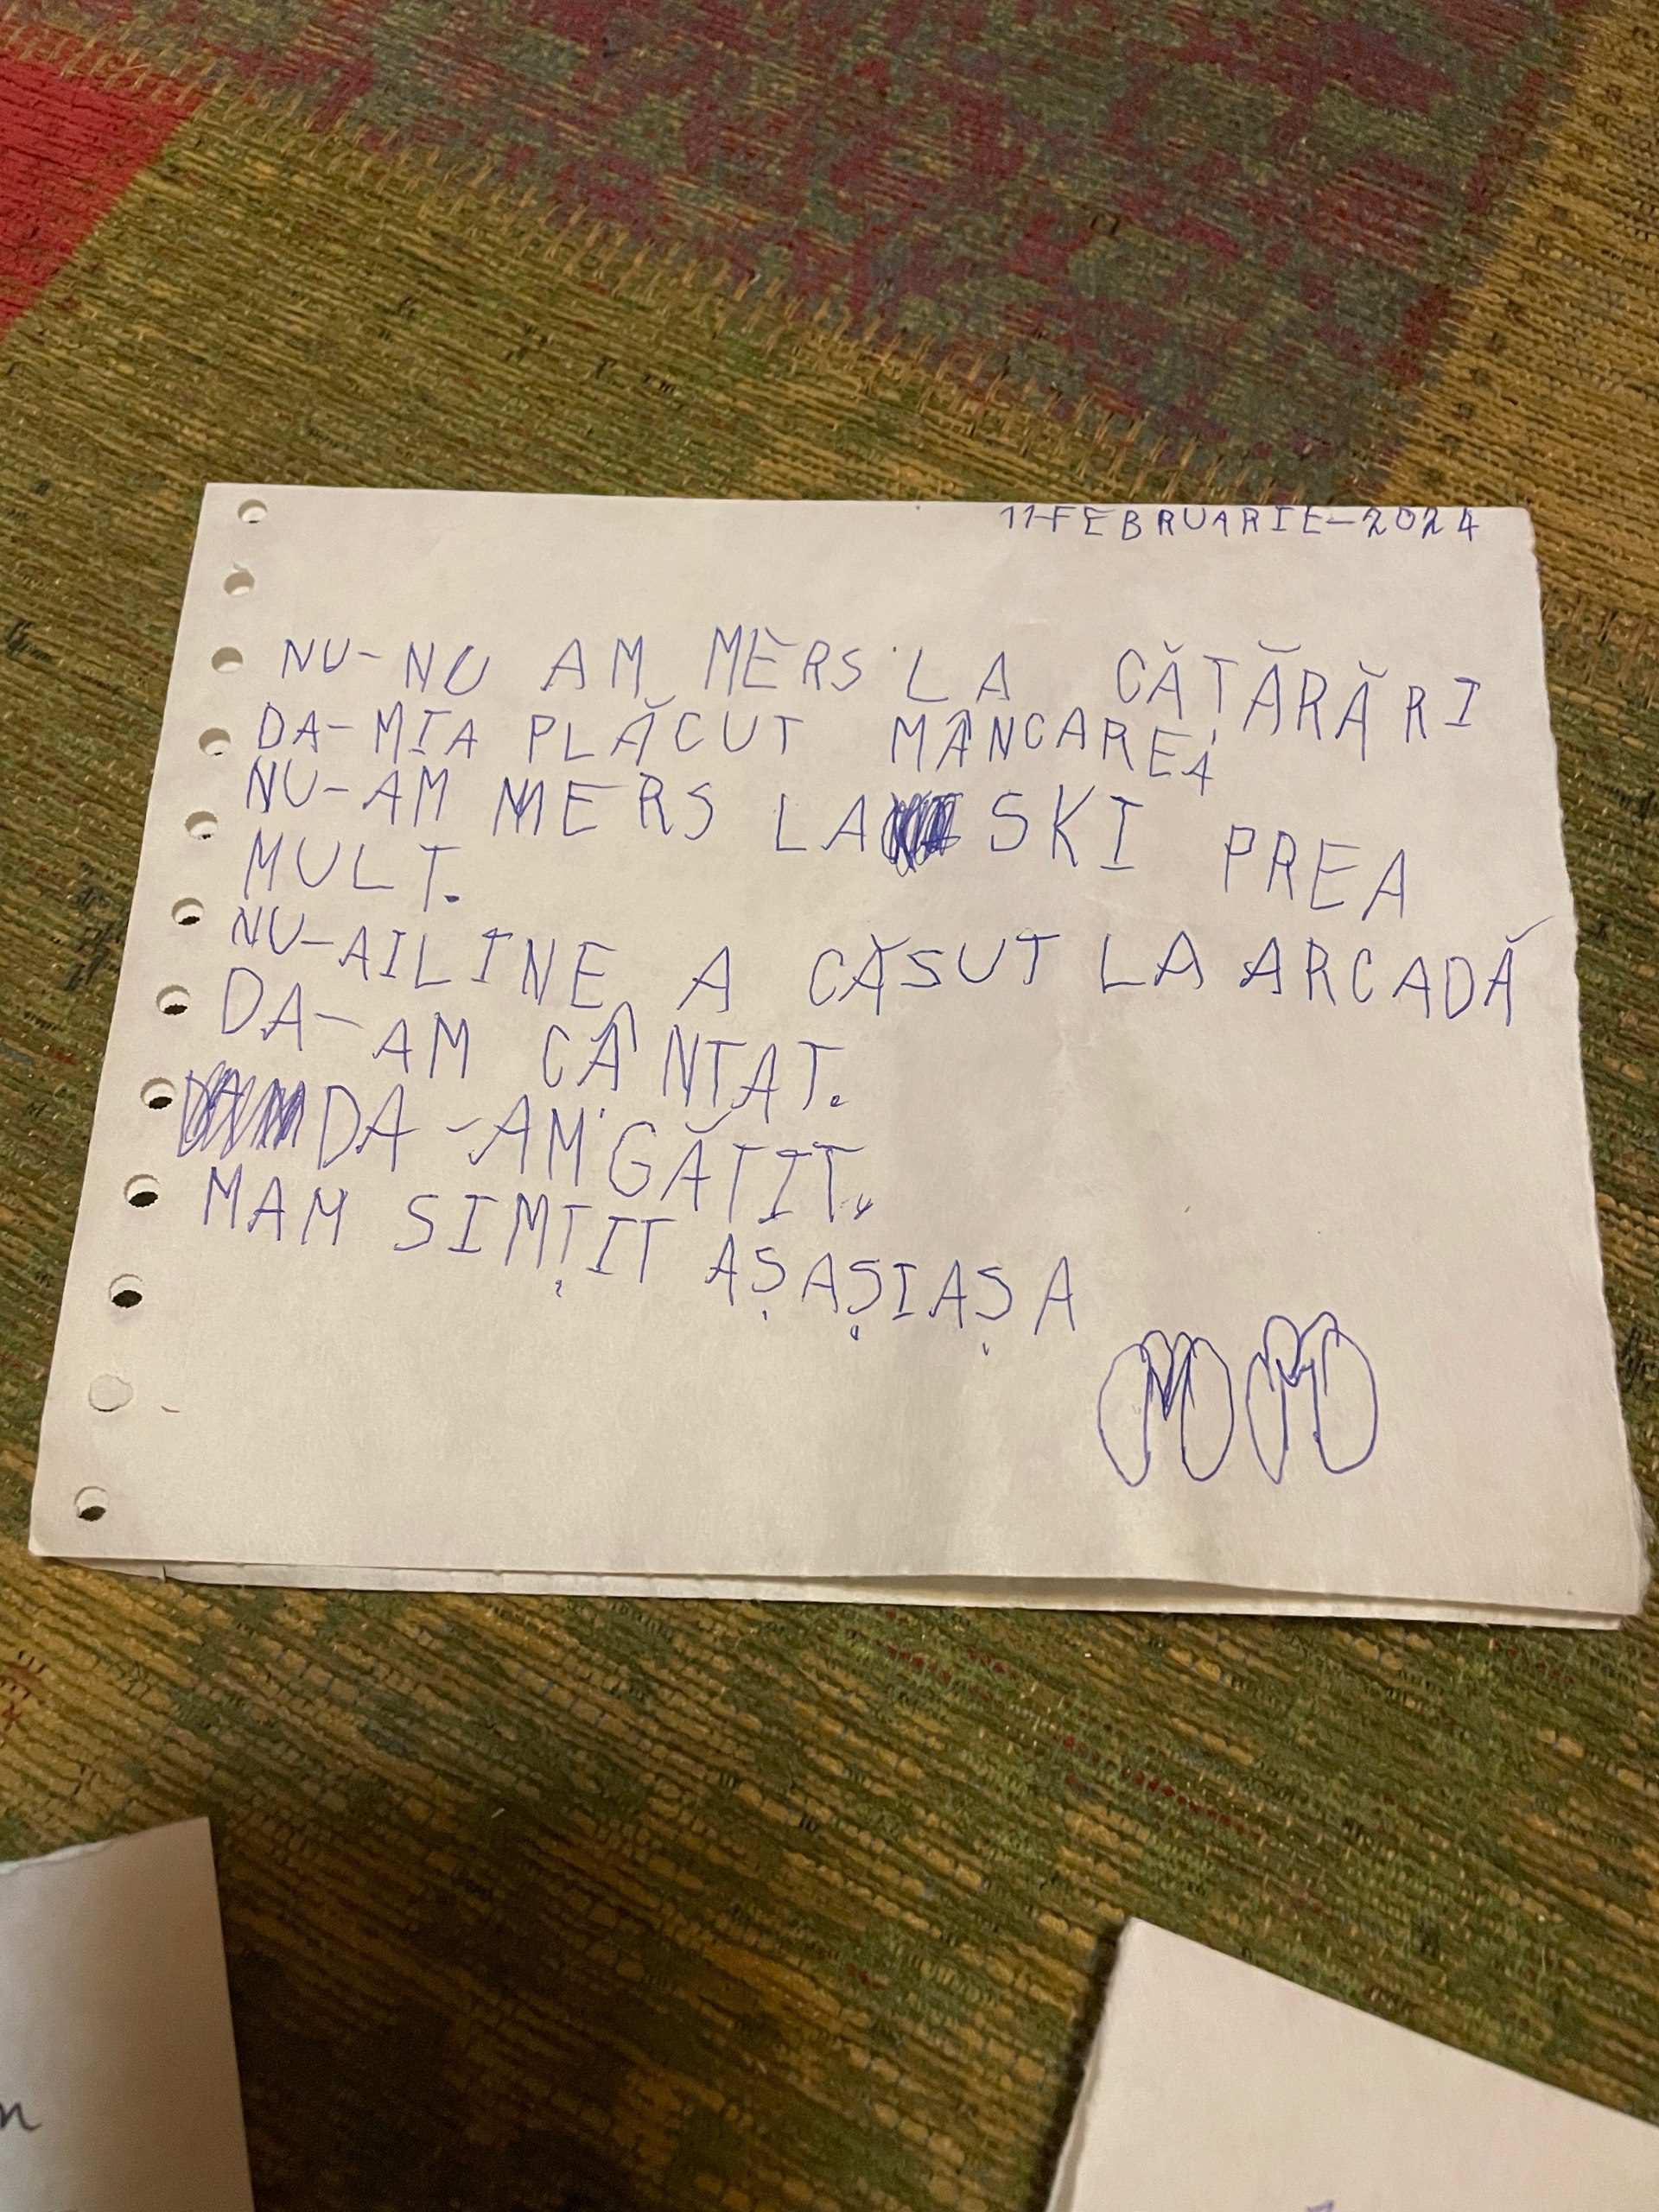 11-FEBRUARIE-2024
NU-NU AM MERS LA CĂȚĂRĂRI
DA-MIA PLĂCUT MÂNCAREA
NU-AM MERS LA SKI PREA
MULT.
NU-AILINE A CĂSUT LA ARCADĂ
DA-AM CÂNTAT.
DA-AM GĂTIT.
MAM SIMȚIT AȘAȘIAȘA